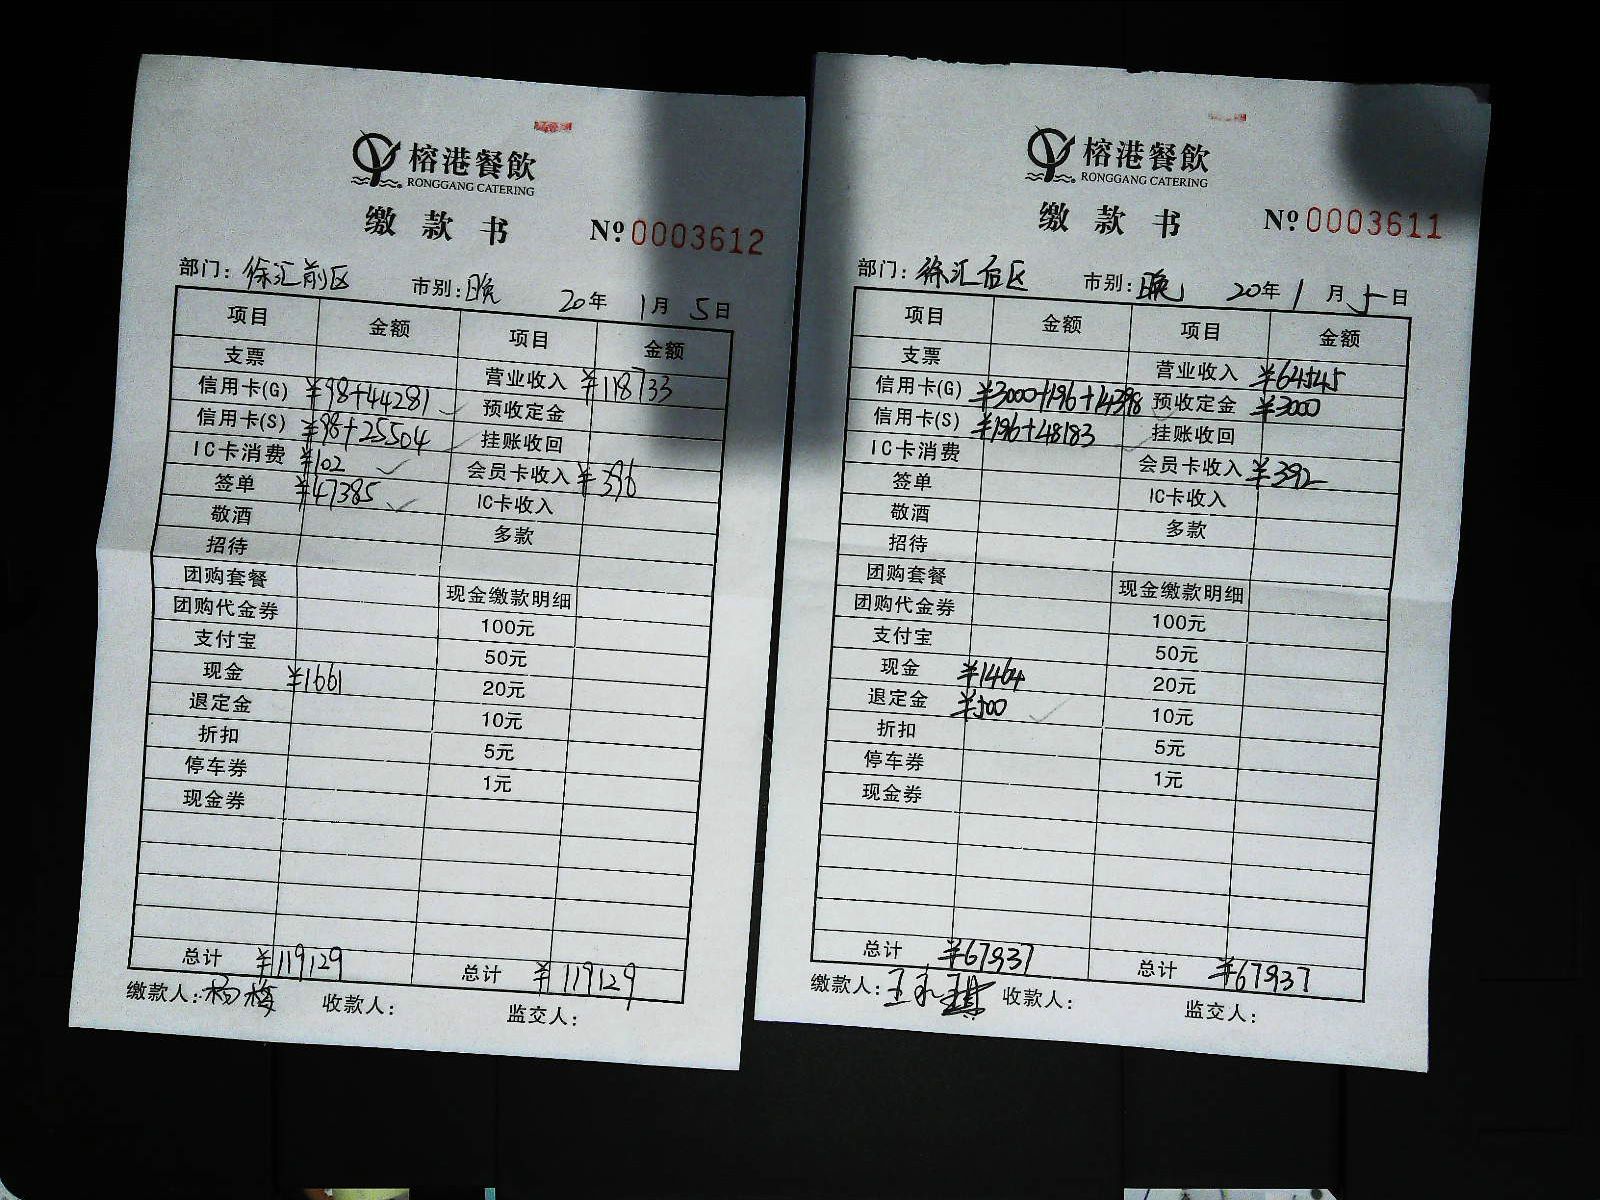 榕港餐飲
RONGGANG CATERING
缴款书 Nº 0003612
部门：徐汇前区 市别：晚 20年 1月 5日
项目 金额 项目 金额
支票 营业收入 ¥118733
信用卡(G) ¥98+44281 预收定金
信用卡(S) ¥98+25504 挂账收回
IC卡消费 ¥102 会员卡收入 ¥396
签单 ¥47385 IC卡收入
敬酒 多款
招待
团购套餐 现金缴款明细
团购代金券 100元
支付宝 50元
现金 ¥1661 20元
退定金 10元
折扣 5元
停车券 1元
现金券
总计 ¥119129 总计 ¥119129
缴款人：杨梅 收款人： 监交人：
榕港餐飲
RONGGANG CATERING
缴款书 Nº 0003611
部门：徐汇后区 市别：晚 20年 1月 5日
项目 金额 项目 金额
支票 营业收入 ¥64545
信用卡(G) ¥3000+196+14398 预收定金 ¥3000
信用卡(S) ¥196+48183 挂账收回
IC卡消费 会员卡收入 ¥392
签单 IC卡收入
敬酒 多款
招待
团购套餐 现金缴款明细
团购代金券 100元
支付宝 50元
现金 ¥1464 20元
退定金 ¥500 10元
折扣 5元
停车券 1元
现金券
总计 ¥67937 总计 ¥67937
缴款人：王 收款人： 监交人：